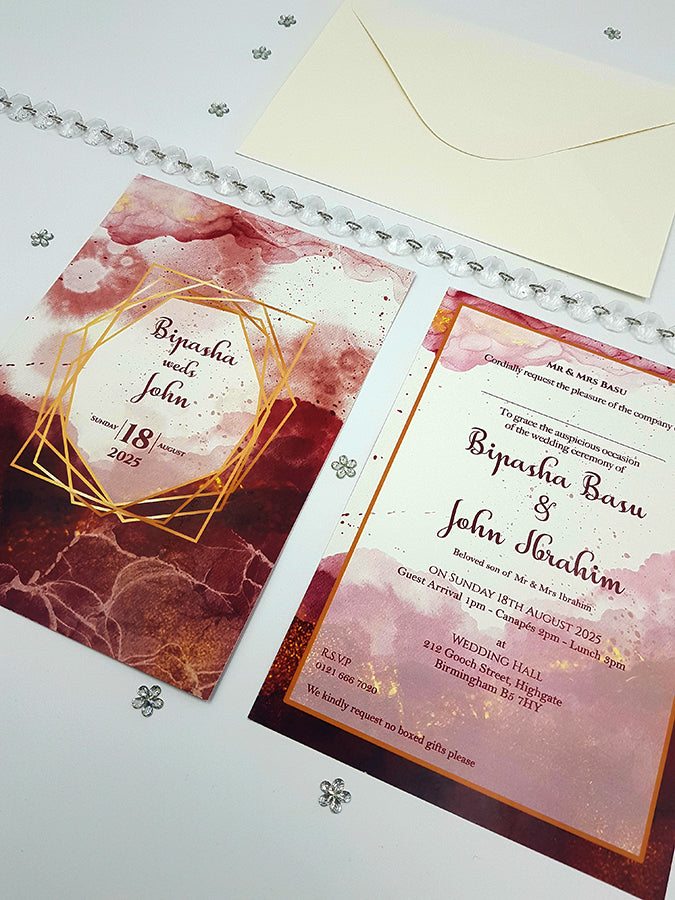 Bipasha
weds
John
SUNDAY 18 AUGUST
2025
MR & MRS BASU
Cordially request the pleasure of the company
To grace the auspicious occasion
of the wedding ceremony of
Bipasha Basu
&
John Ibrahim
Beloved son of Mr & Mrs Ibrahim
ON SUNDAY 18TH AUGUST 2025
Guest Arrival 1pm - Canapés 2pm - Lunch 3pm
at
WEDDING HALL
212 Gooch Street, Highgate
Birmingham B5 7HY
R.S.V.P
0121 666 7020
We kindly request no boxed gifts please